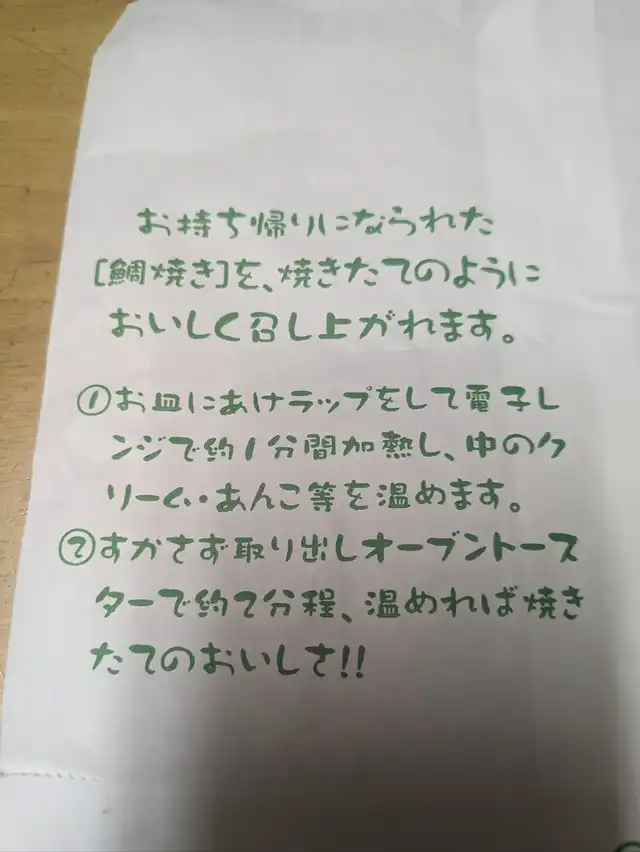 お持ち帰りになられた
[鯛焼き]を、焼きたてのように
おいしく召し上がれます。
①お皿にあけラップをして電子レ
ンジで約1分間加熱し、中のク
リーム・あんこ等を温めます。
②すかさず取り出しオーブントース
ターで約2分程、温めれば焼き
たてのおいしさ!!